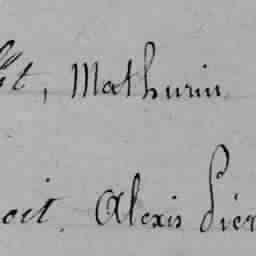 et, Mathurin
oit. Alexis Pier